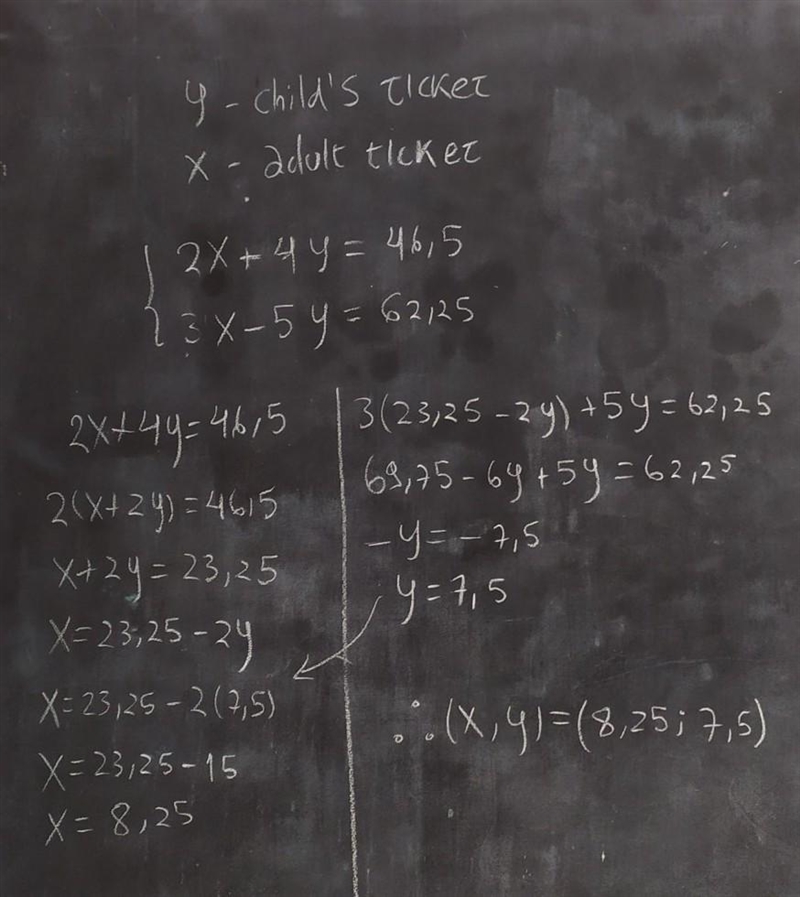 y - child's ticket
x - adult ticket
2x + 4y = 46,5
3x - 5y = 62,25
2x + 4y = 46,5
2(x + 2y) = 46,5
x + 2y = 23,25
x = 23,25 - 2y
x = 23,25 - 2(7,5)
x = 23,25 - 15
x = 8,25
3(23,25 - 2y) + 5y = 62,25
69,75 - 6y + 5y = 62,25
-y = -7,5
y = 7,5
∴ (x, y) = (8,25; 7,5)